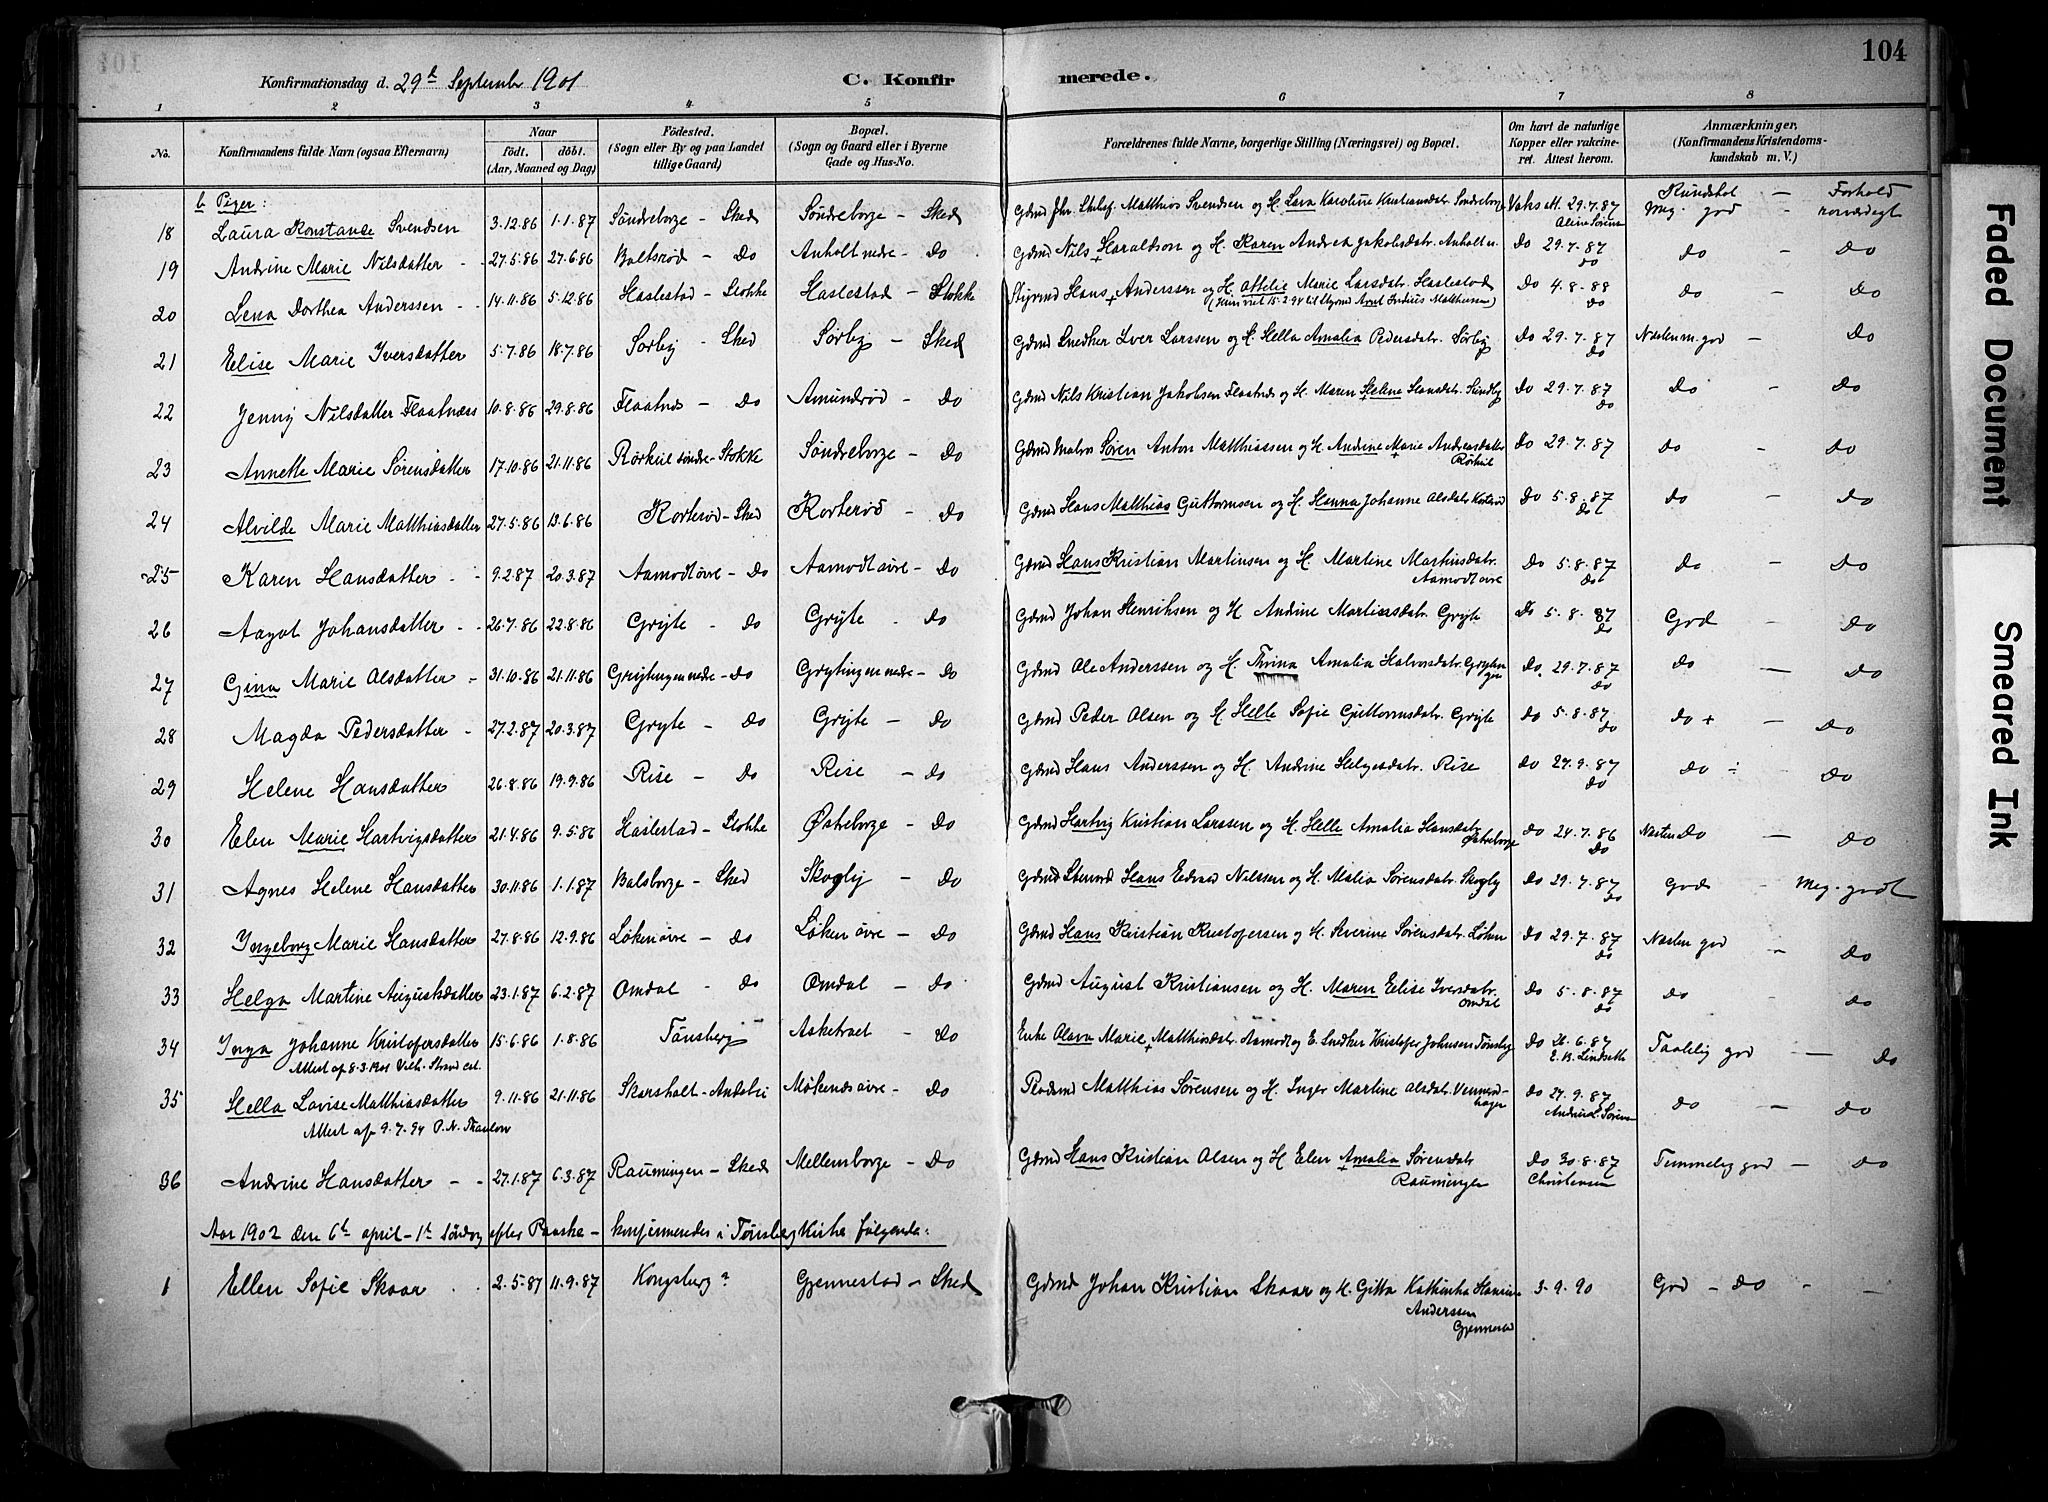 104
Konfirmationsdag d. 29de September 1901 C. Konfirmerede.
1 2 3 4 5 6 7 8
No. Konfirmandens fulde Navn (ogsaa Efternavn) Naar født. døbt. (Aar, Maaned og Dag) Fødested. (Sogn eller By og paa Landet tillige Gaard) Bopæl. (Sogn og Gaard eller i Byerne Gade og Hus-No. Forældrenes fulde Navne, borgerlige Stilling (Næringsvei) og Bopæl. Om havt de naturlige Kopper eller vakcineret. Attest herom. Anmærkninger, (Konfirmandens Kristendomskundskab m. V.)
b Piger: Kundskab — Forhold
18 Laura Konstance Svendsen 3.12.86 1.1.87 Søndreborge – Sked Søndreborge – Sked Gdmd Matthias Svendsen og H. Lava Karoline Kristiansdatr. Søndreborge Vaks att. 29.7.87 Meg. god
19 Andrine Marie Nilsdatter 27.5.86 27.6.86 Do Anholt nedre – Do Gdmd Nils Haraldson og H. Karen Andrea Jakobsdatr. Anholt n. Do 29.7.87 Do Do – Do
20 Lena Dorthea Anderssen 14.11.86 5.12.86 Haslestad – Stokke Haslestad – Stokke Styrmd Hans Anderssen og H. Attelie Marie Larsdatr. Haslestad Do 4.8.88 Do Do – Do
21 Elise Marie Iversdatter 5.7.86 18.7.86 Sørby – Sked Sørby – Sked Gdmd Snedker Iver Larssen og H. Hella Amalia Pedersdatr. Sørby Do 29.7.87 Do Næsten m. god – Do
22 Jenny Nilsdatter Flaatnæs 10.8.86 29.8.86 Flaatnæs – Do Amundrød – Do Gdmd Nils Kristian Jakobsen Flaatnæs og H. Maren Helene Hansdatr. Do 29.7.87 Do Do – Do
23 Annette Marie Sørensdatter 17.10.86 21.11.86 Rørkoll søndre – Stokke Søndreborge – Do Gdmd Søren Anton Matthiassen og H. Andrine Marie Andreasdatter Do 29.7.87 Do – Do
24 Alvilde Marie Matthiasdatter 27.5.86 13.6.86 Korterød – Sked Korterød – Do Gdmd Hans Matthias Guttormsen og H. Hanna Johanne Olsdatr. Korterød Do 5.8.87 Do Do – Do
25 Karen Hansdatter 9.2.87 20.3.87 Aamodt øvre – Do Aamodt øvre – Do Gdmd Hans Kristian Martinsen og H. Martine Martinsdatr. Aamodt øvre Do 5.8.87 Do Do – Do
26 Aagot Johansdatter 26.7.86 22.8.86 Gryte – Do Gryte – Do Gdmd Johan Henriksen og H. Andrine Martinsdatr. Gryte Do 5.8.87 Do God – Do
27 Gina Marie Olsdatter 31.10.86 21.11.86 Grytingen nedre – Do Grytingen nedre – Do Gdmd Ole Anderssen og H. Thrina Amalia Halvorsdatr. Do 29.7.87 Do Do – Do
28 Magda Pedersdatter 27.2.87 20.3.87 Gryte – Do Gryte – Do Gdmd Peder Olsen og H. Helle Sofie Guttormsdatr. Gryte Do 5.8.87 Do Do + – Do
29 Helene Hansdatter 26.8.86 19.9.86 Rise – Do Rise – Do Gdmd Hans Anderssen og H. Andrine Helgesdatr. Rise Do 27.9.87 Do Do ÷ Do
30 Elen Marie Hartvigsdatter 21.4.86 9.5.86 Haslestad – Stokke Østreborge – Do Gdmd Hartvig Kristian Larssen og H. Helle Amalia Hansdatr. Østreborge Do 24.7.86 Do Næsten Do – Do
31 Agnes Helene Hansdatter 30.11.86 1.1.87 Balsborge – Sked Skogly – Do Gdmd Hans Edvard Nilssen og H. Malia Sørensdatr. Skogly Do 29.7.87 Do God – Meg. godt
32 Ingeborg Marie Hansdatter 27.8.86 12.9.86 Løken øvre – Do Løken øvre – Do Gdmd Hans Kristian Kristofersen og H. Severine Sørensdatr. Løken Do 29.7.87 Do Næsten god – Do
33 Helga Martine Augustsdatter 23.1.87 6.2.87 Omdal – Do Omdal – Do Gdmd August Kristiansen og H. Maren Elise Iversdatr. Omdal Do 5.8.87 Do Do – Do
34 Inga Johanne Kristofersdatter 15.6.86 1.8.86 Tønsberg Asketræt – Do Enke Olava Marie Matthiasdatr. Aamodt og E. Snedker Kristofer Johnsen Tønsberg Do 26.6.87 Taalelig god – Do
Attest af 8.3.1901
35 Hella Lovise Matthiasdatter 9.11.86 21.11.86 – Andebu Do Pladsmd Matthias Sørensen og H. Inger Martine Olsdatr. Do 27.9.87 Do – Do
Attest af 9.7.94
36 Andrine Hansdatter 27.1.87 6.3.87 Raumingen – Sked Mellemborge – Do Gdmd Hans Kristian Olsen og H. Elen Amalia Sørensdatr. Raumingen Do 30.8.87 Christensen Temmelig god – Do
Aar 1902 den 6te april – 1ste søndag efter Paaske – konfirmeredes i Tønsberg Kirke følgende:
1 Ellen Sofie Skaar 2.5.87 11.9.87 Kongsberg? Gjennestad – Sked Gdmd Johan Kristian Skaar og H. Gitta Kathinka Anderssen 3.9.90 God – Do –
Faded Document
Smeared Ink